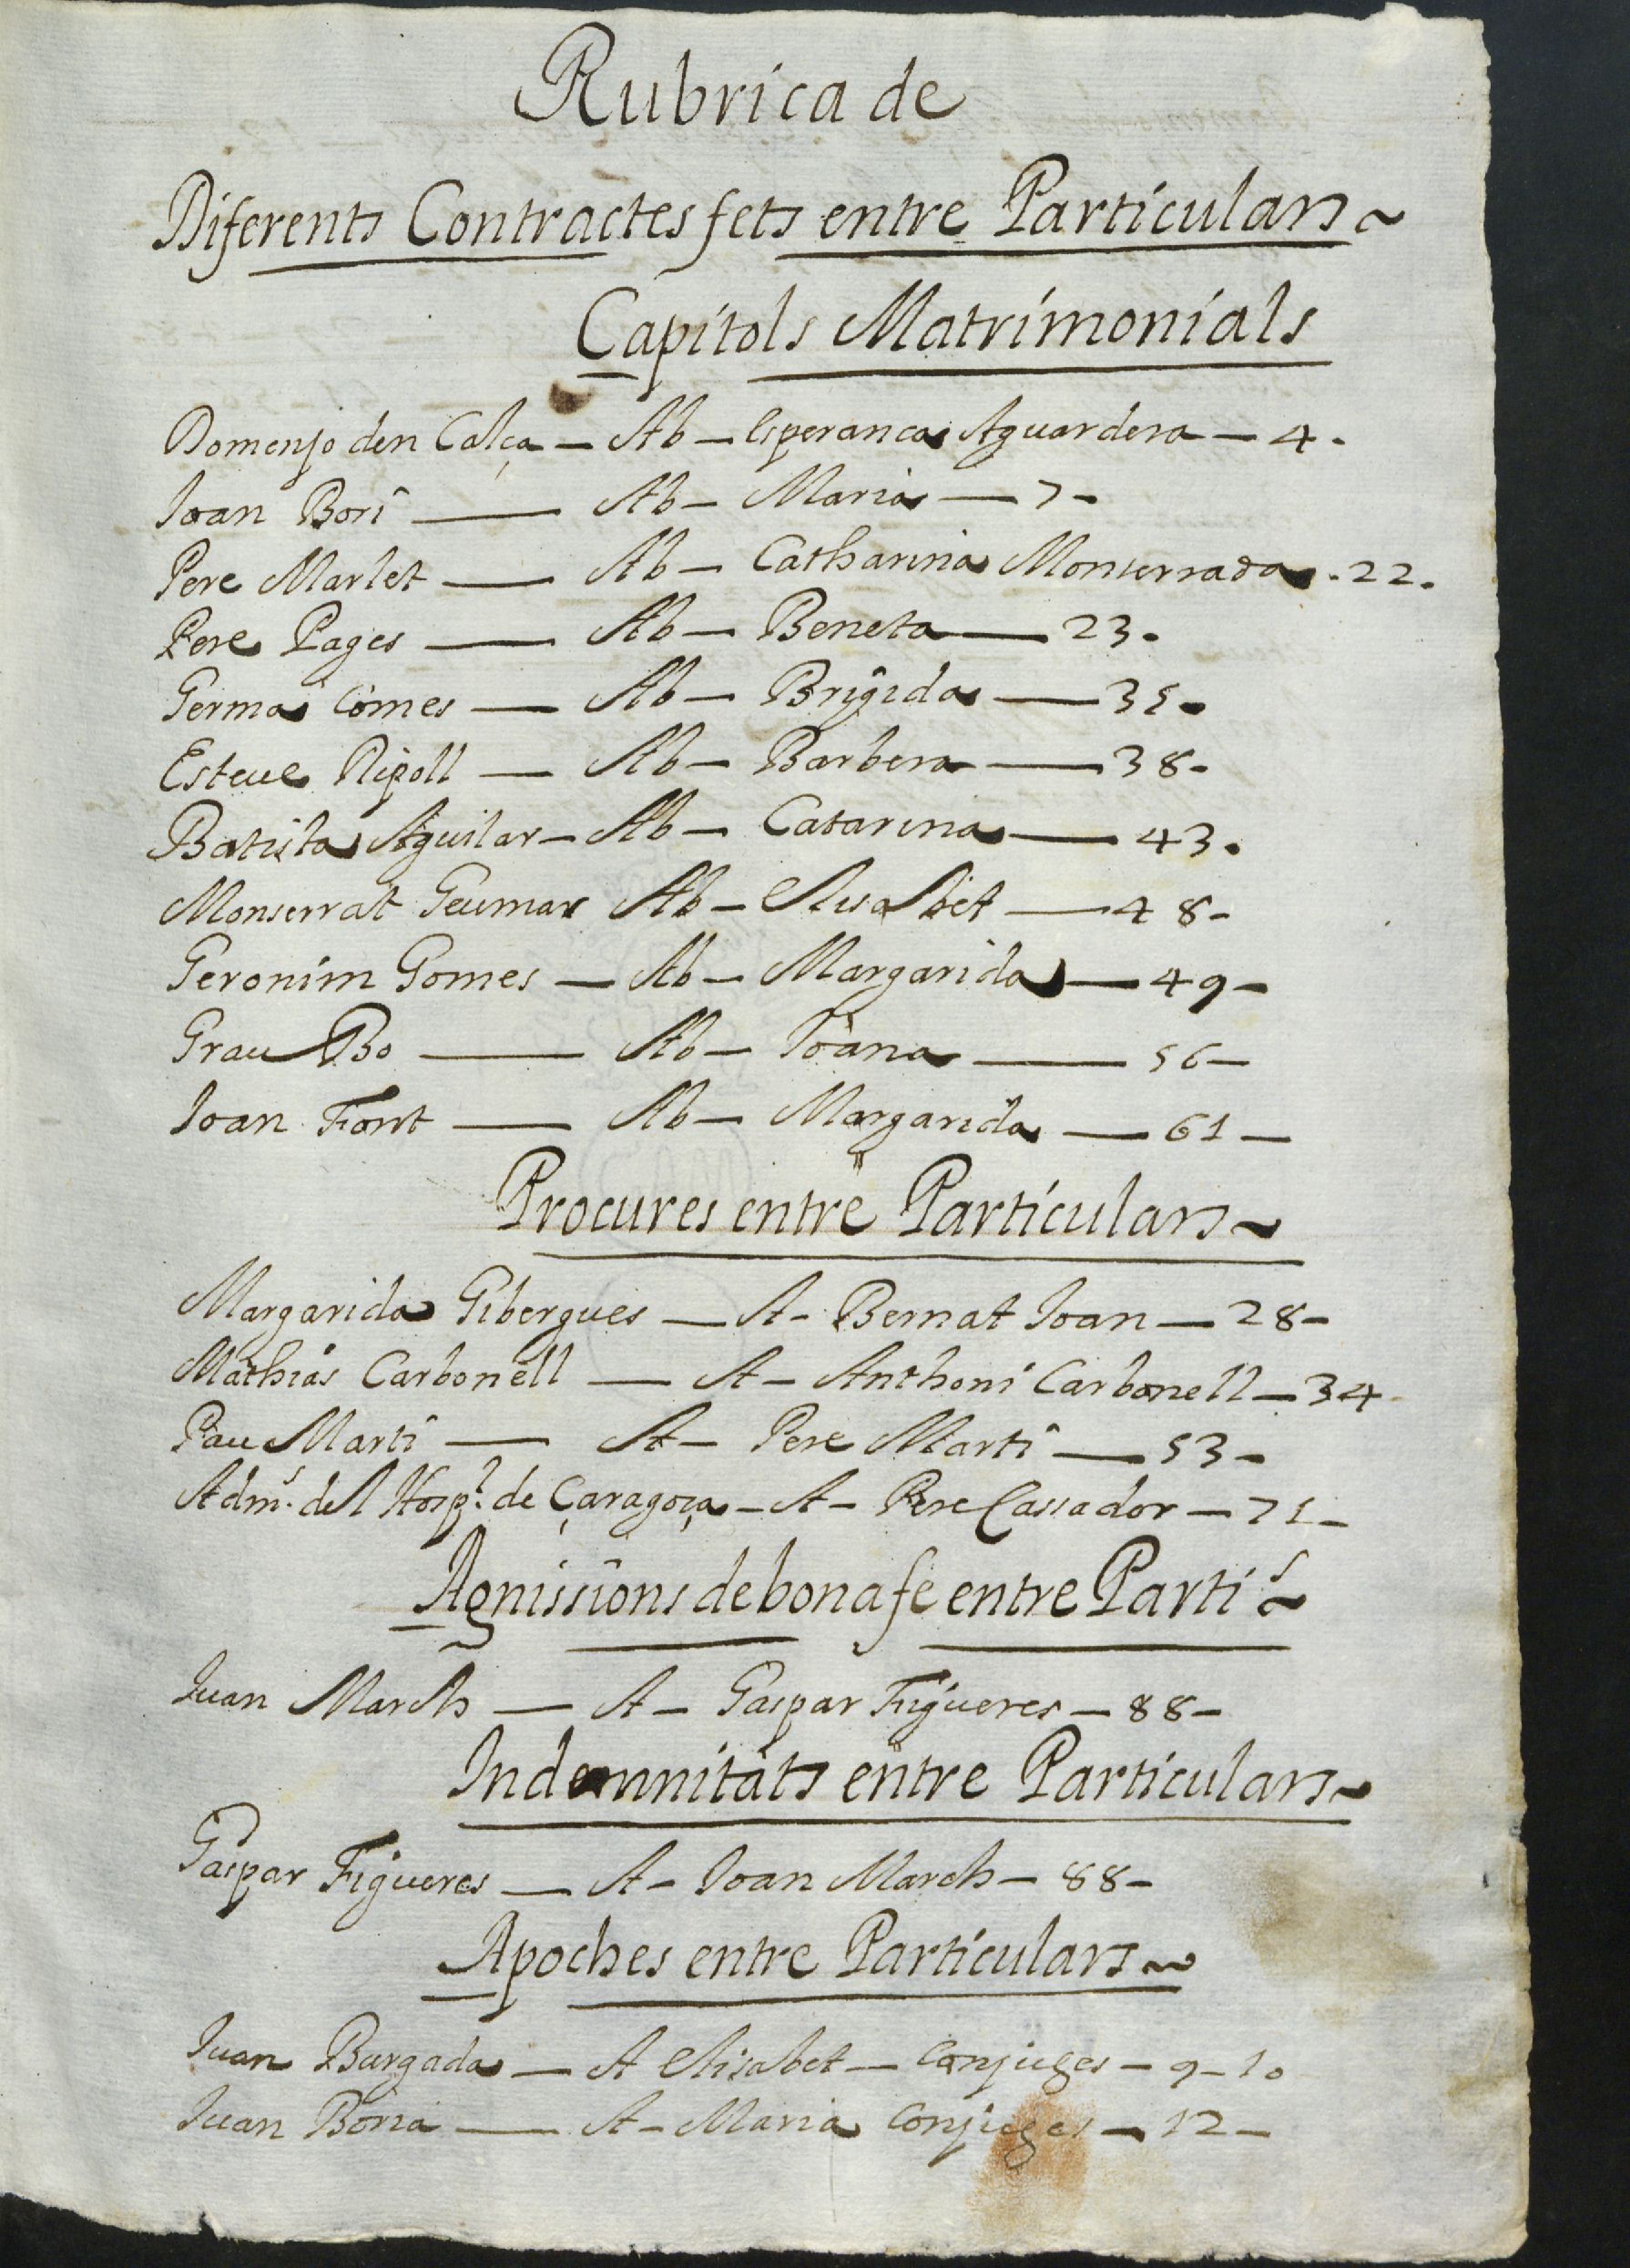 Rubrica de
Diferents Contractes fets entre Particulars ~
Capitols Matrimonials
Domenjo den Calça — Ab — Esperanca Aguardera — 4.
Joan Bori — Ab — Maria — 7 -
Pere Marlet — Ab — Catharina Monserrada . 22.
Pere Pages — Ab — Beneta — 23.
Germa Comes — Ab — Brigida — 35.
Esteve Ripoll — Ab — Barbera — 38 -
Batista Aguilar — Ab — Catarina — 43.
Monserrat Geumar Ab — Elisabet — 48 -
Geronim Gomes — Ab — Margarida — 49 -
Grau Bo — Ab — Joana — 56 —
Joan Font — Ab — Margarida — 61 —
Procures entre Particulars ~
Margarida Gibergues — A - Bernat Joan — 28 -
Mathias Carbonell — A — Anthoni Carbonell — 34 -
Pau Marti — A — Pere Marti — 53 -
Adm.s del Hosp.l de Çaragoça — A — Pere Cassador — 71 -
Agnissions de bona fe entre Parti.s ~
Juan March — A — Gaspar Figueres — 88 -
Indemnitats entre Particulars ~
Gaspar Figueres — A — Joan March — 88 -
Apoches entre Particulars ~
Juan Burgada — A Elisabet — Conjuges — 9 - 10
Juan Boria — A — Maria Conjuges — 12 -